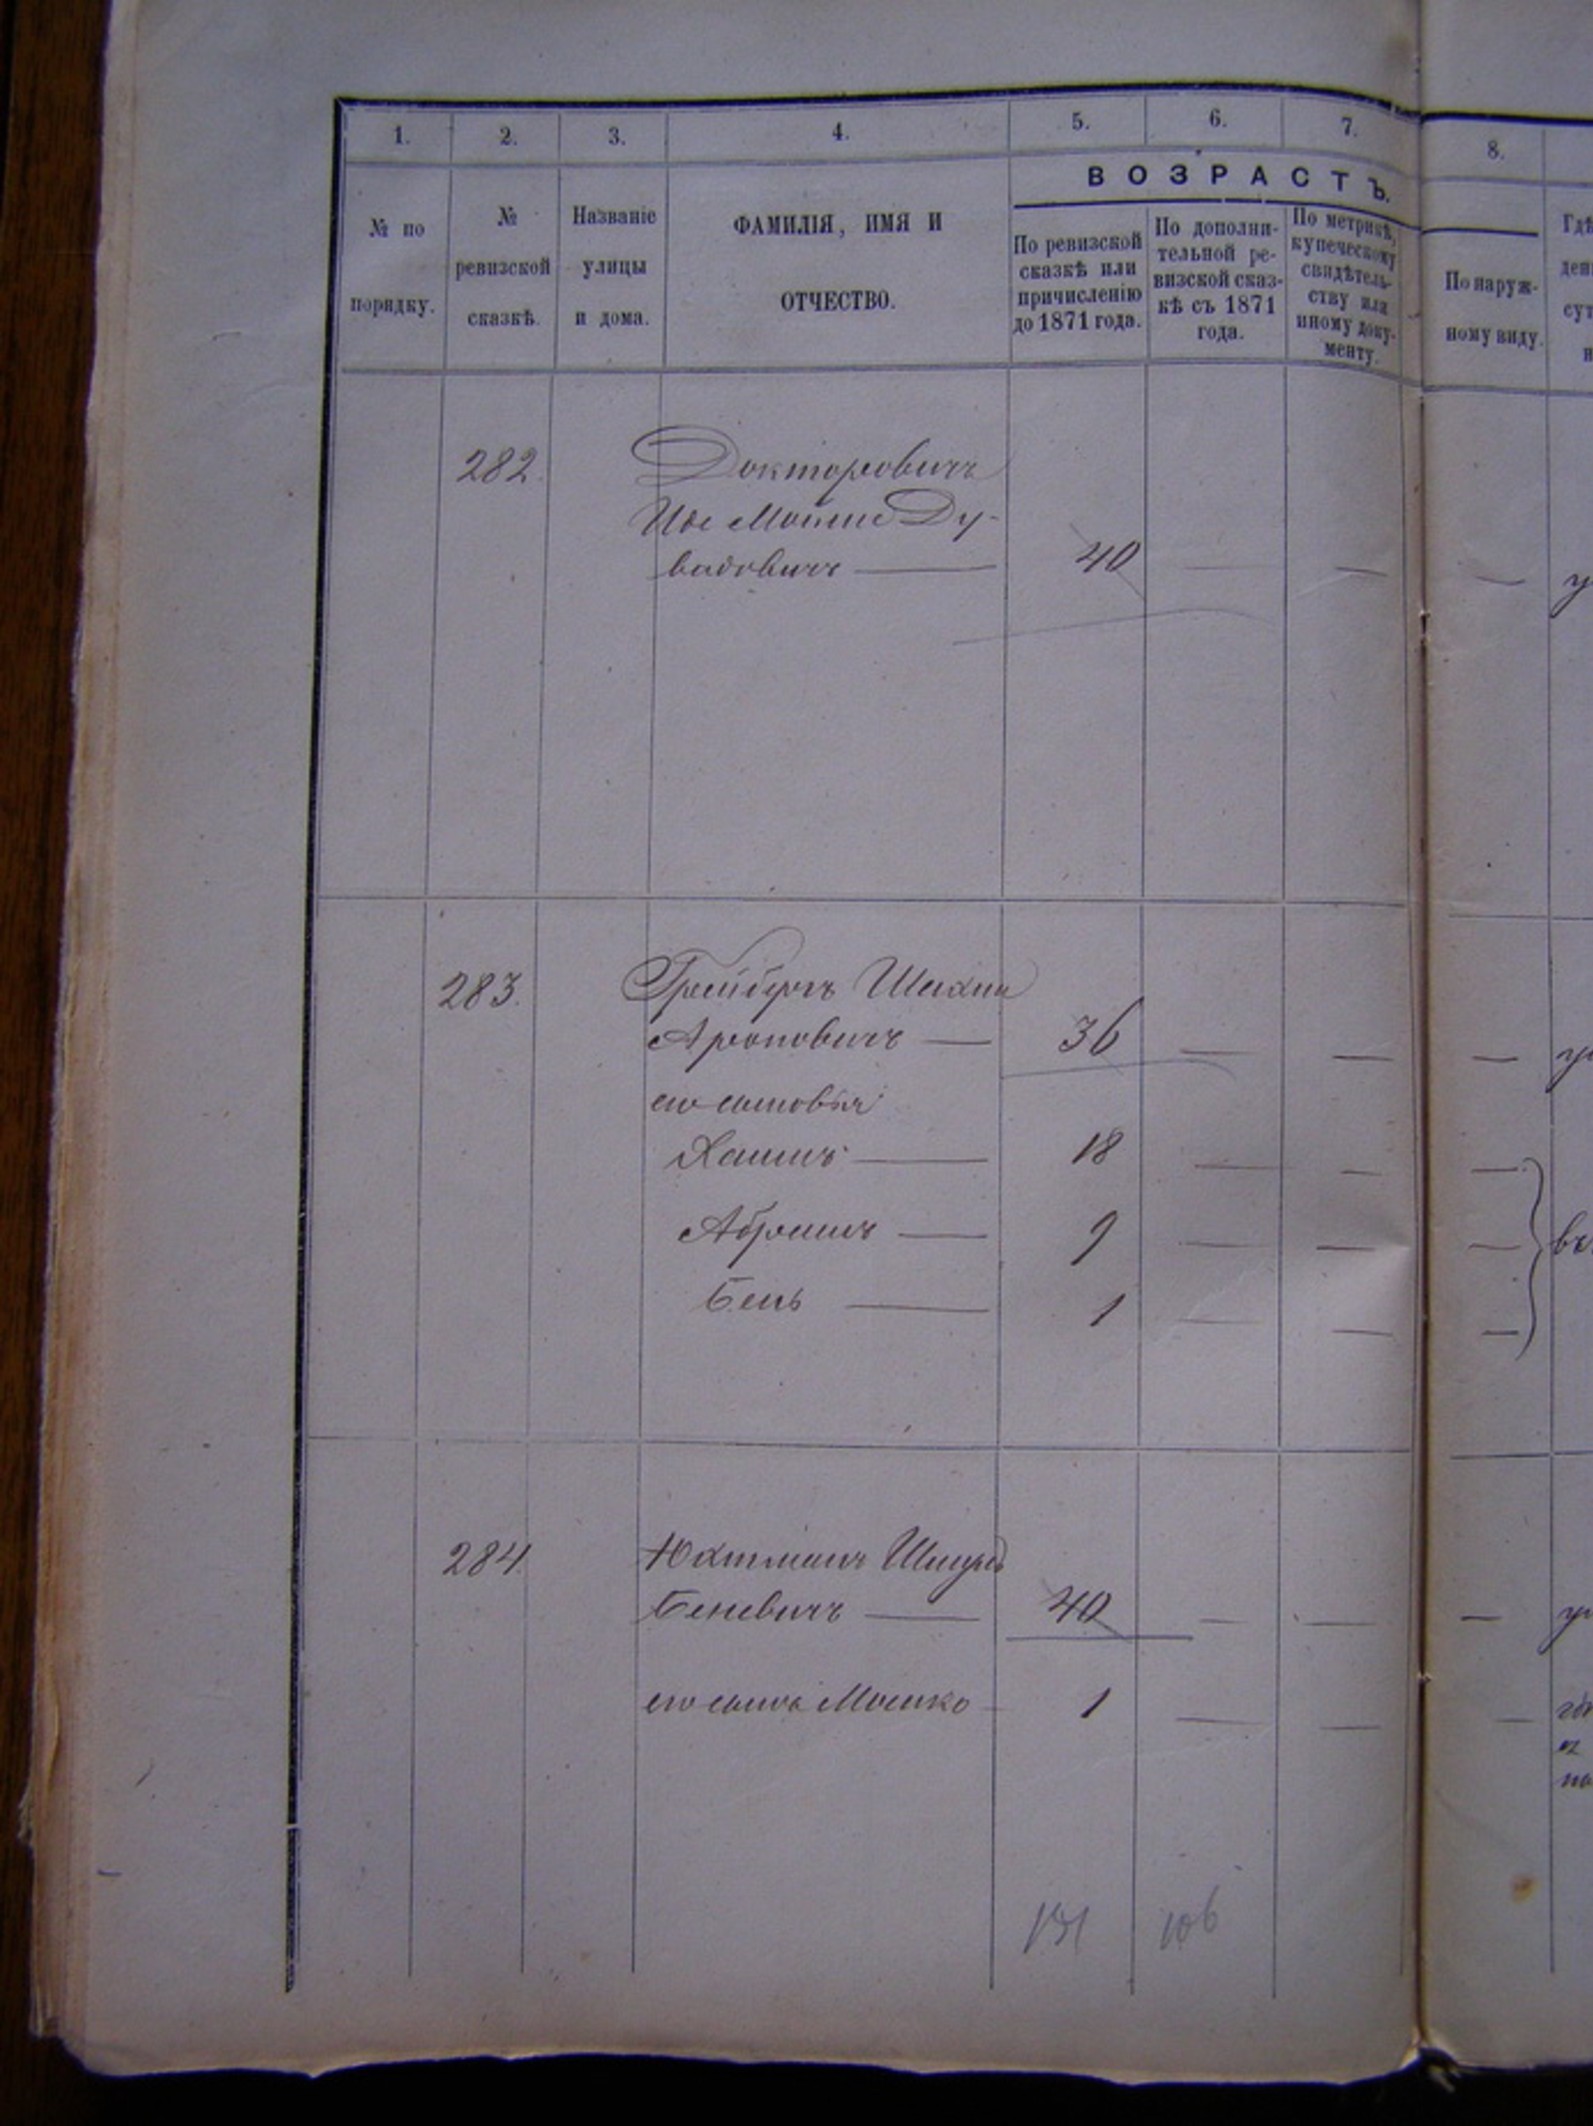 1. 2. 3. 4. 5. 6. 7. 8.
ВОЗРАСТЪ.
№ по
порядку.
№
ревизской
сказкѣ.
Названіе
улицы
и дома.
ФАМИЛІЯ, ИМЯ И
ОТЧЕСТВО.
По ревизской
сказкѣ или
причисленію
до 1871 года.
По дополни-
тельной ре-
визской сказ-
кѣ съ 1871
года.
По метрикѣ,
купеческому
свидѣтель-
ству или
иному доку-
менту.
По наруж-
ному виду.
282. Докторовичъ
Мошко Ду-
вадовичъ — 40 — — —
283. Грейбергъ
Ароновичъ — 36 — — —
его сыновья
Хаимъ — 18 — — —
Абрамъ — 9 — — —
Бень — 1 — — —
284. Юхтманъ
Беневичъ — 40 — — —
его сынъ Мошко — 1 — — —
106